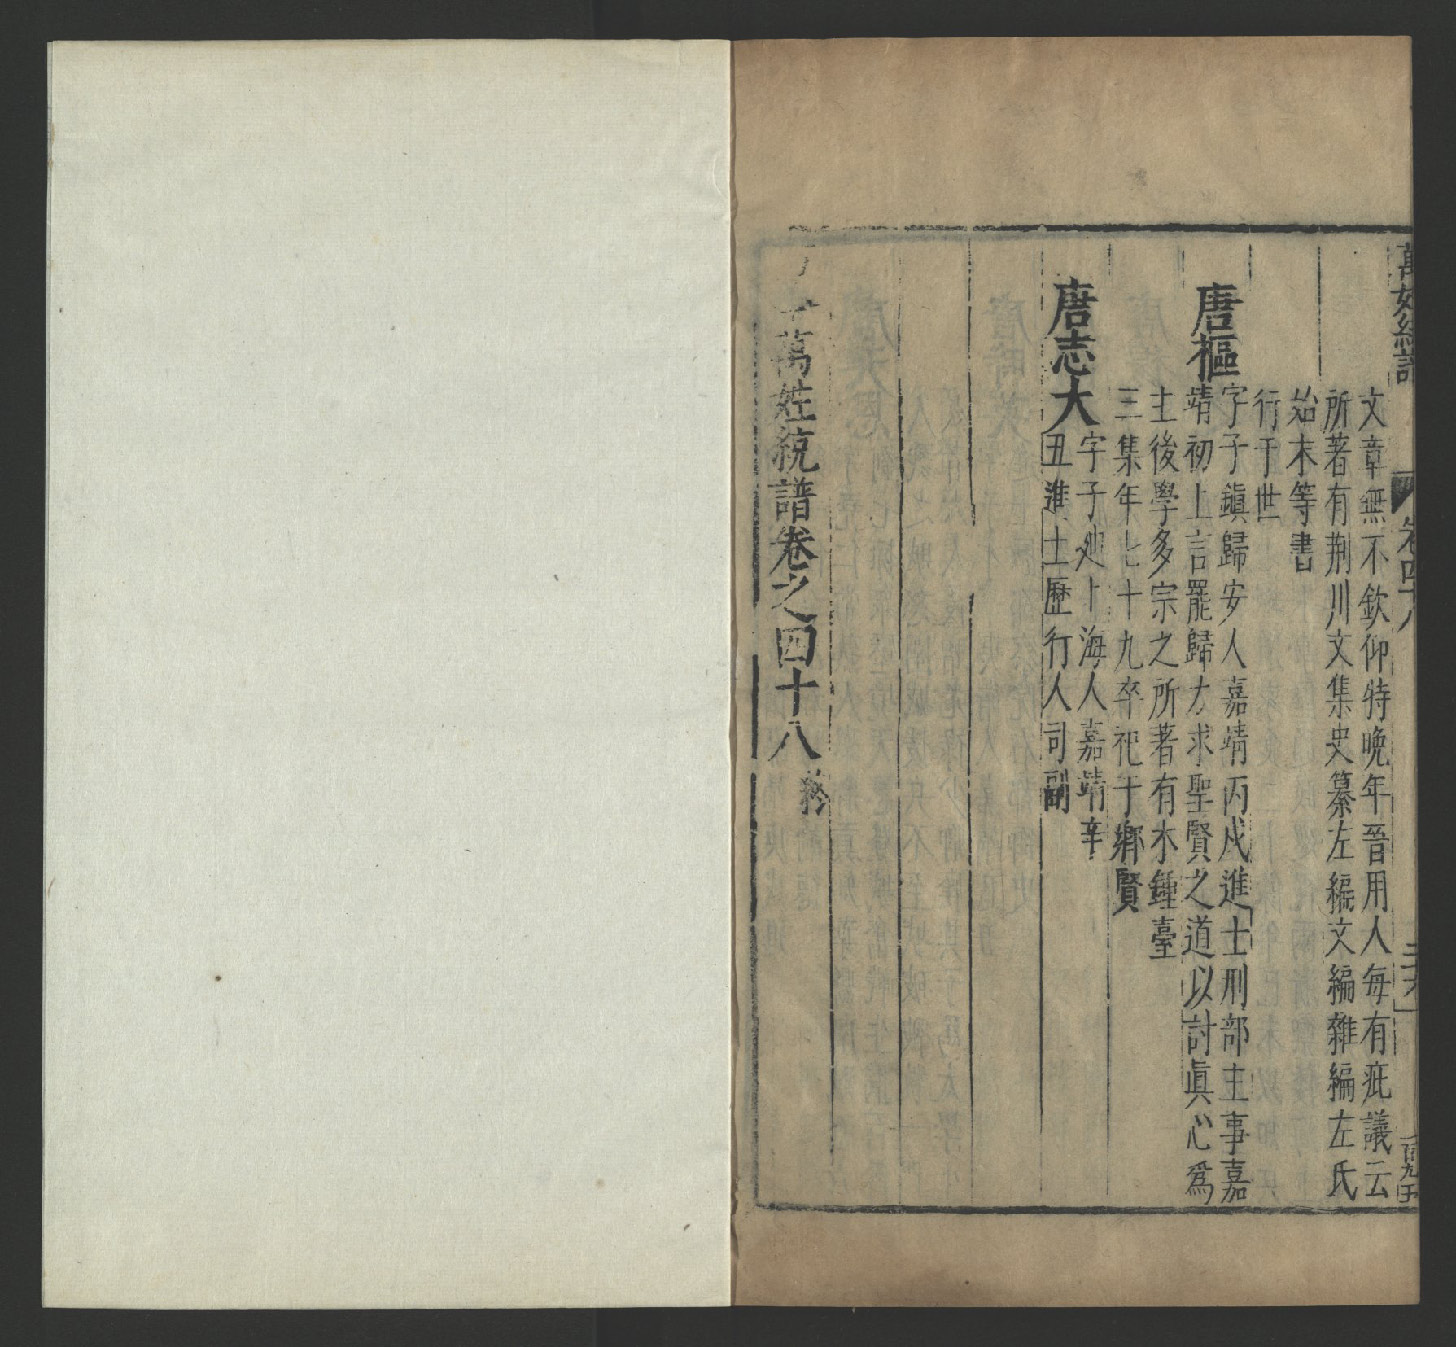 萬姓統譜
卷四十八
二十六
一百九五
文章無不欽仰特晚年晉用人每有疵議云
所著有荆川文集史纂左編文編雜編左氏
始末等書
行于世
唐樞
字子鎮歸安人嘉靖丙戌進士刑部主事嘉
靖初上言罷歸力求聖賢之道以討眞心爲
主後學多宗之所著有木鍾臺
三集年七十九卒祀于鄉賢
唐志大
字子廸上海人嘉靖辛
丑進士歷行人司副
萬姓統譜卷之四十八